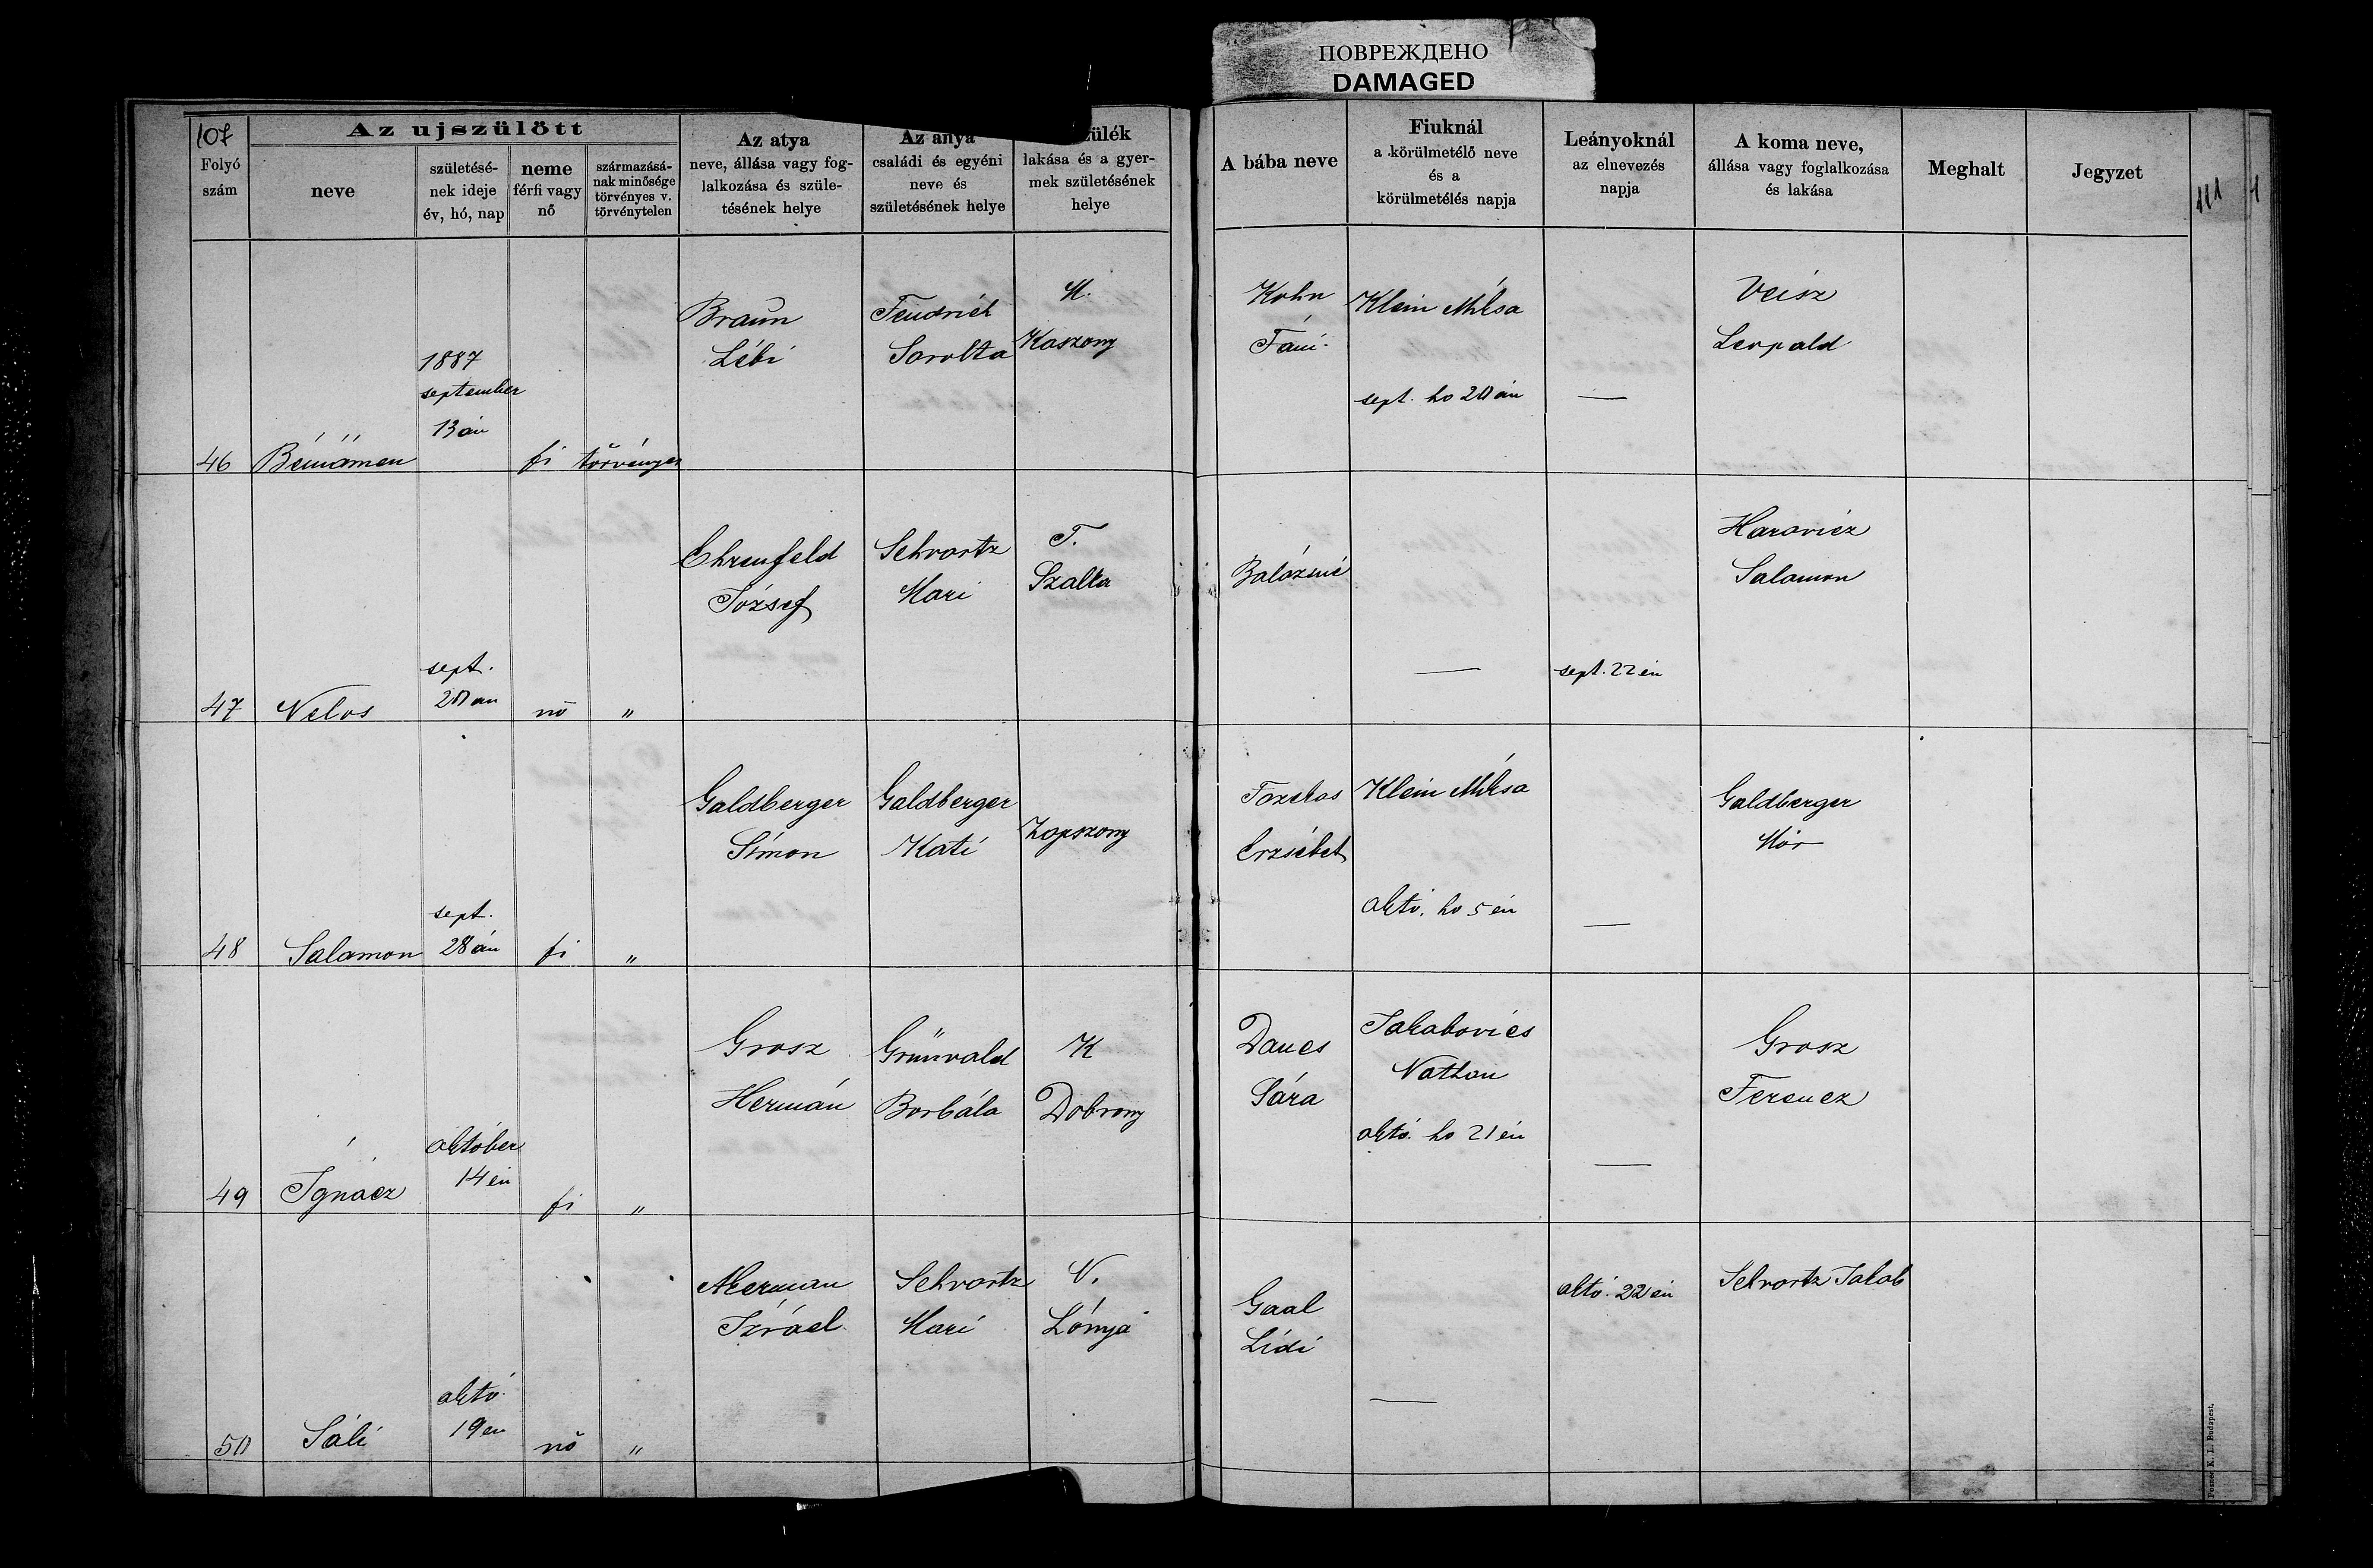 ПОВРЕЖДЕНО
DAMAGED
107
Folyó
szám
Az ujszülött
neve
születésé-
nek ideje
év, hó, nap
neme
férfi vagy
nő
származásá-
nak minősége
törvényes v.
törvénytelen
Az atya
neve, állása vagy fog-
lalkozása és szüle-
tésének helye
Az anya
családi és egyéni
neve és
születésének helye
zülék
lakása és a gyer-
mek születésének
helye
A bába neve
Fiuknál
a körülmetélő neve
és a
körülmetélés napja
Leányoknál
az elnevezés
napja
A koma neve,
állása vagy foglalkozása
és lakása
Meghalt
Jegyzet
46
1887
september
13án
fi
törvényes
Braun
Lébi
Sarolta
K.
Kaszony
Kohn
Fáni
Klein Miksa
sept. ho 20án
—
Veisz
Leopald
47
sept.
20an
nö
"
Ehrenfeld
József
Schvartz
Mari
T.
Szalka
Balázsné
—
sept. 22én
Haravicz
Salamon
48
Salamon
sept.
28án
fi
"
Galdberger
Simon
Galdberger
Kati
Zapszony
Erzsébet
Klein Miksa
akto. ho 5én
—
Galdberger
Mór
49
Ignácz
aktóber
14én
fi
"
Grosz
Hermán
Grünvald
Borbála
K
Dobrony
Sára
Jakabovics
Nathan
aktó. ho 21én
—
Grosz
Ferencz
50
Sáli
aktó.
19en
nö
"
Akerman
Izráel
Schvartz
Mari
N.
Lónya
Gaal
Lidi
—
aktó. 22én
Schvartz Jakab
Posner K. L. Budapest.